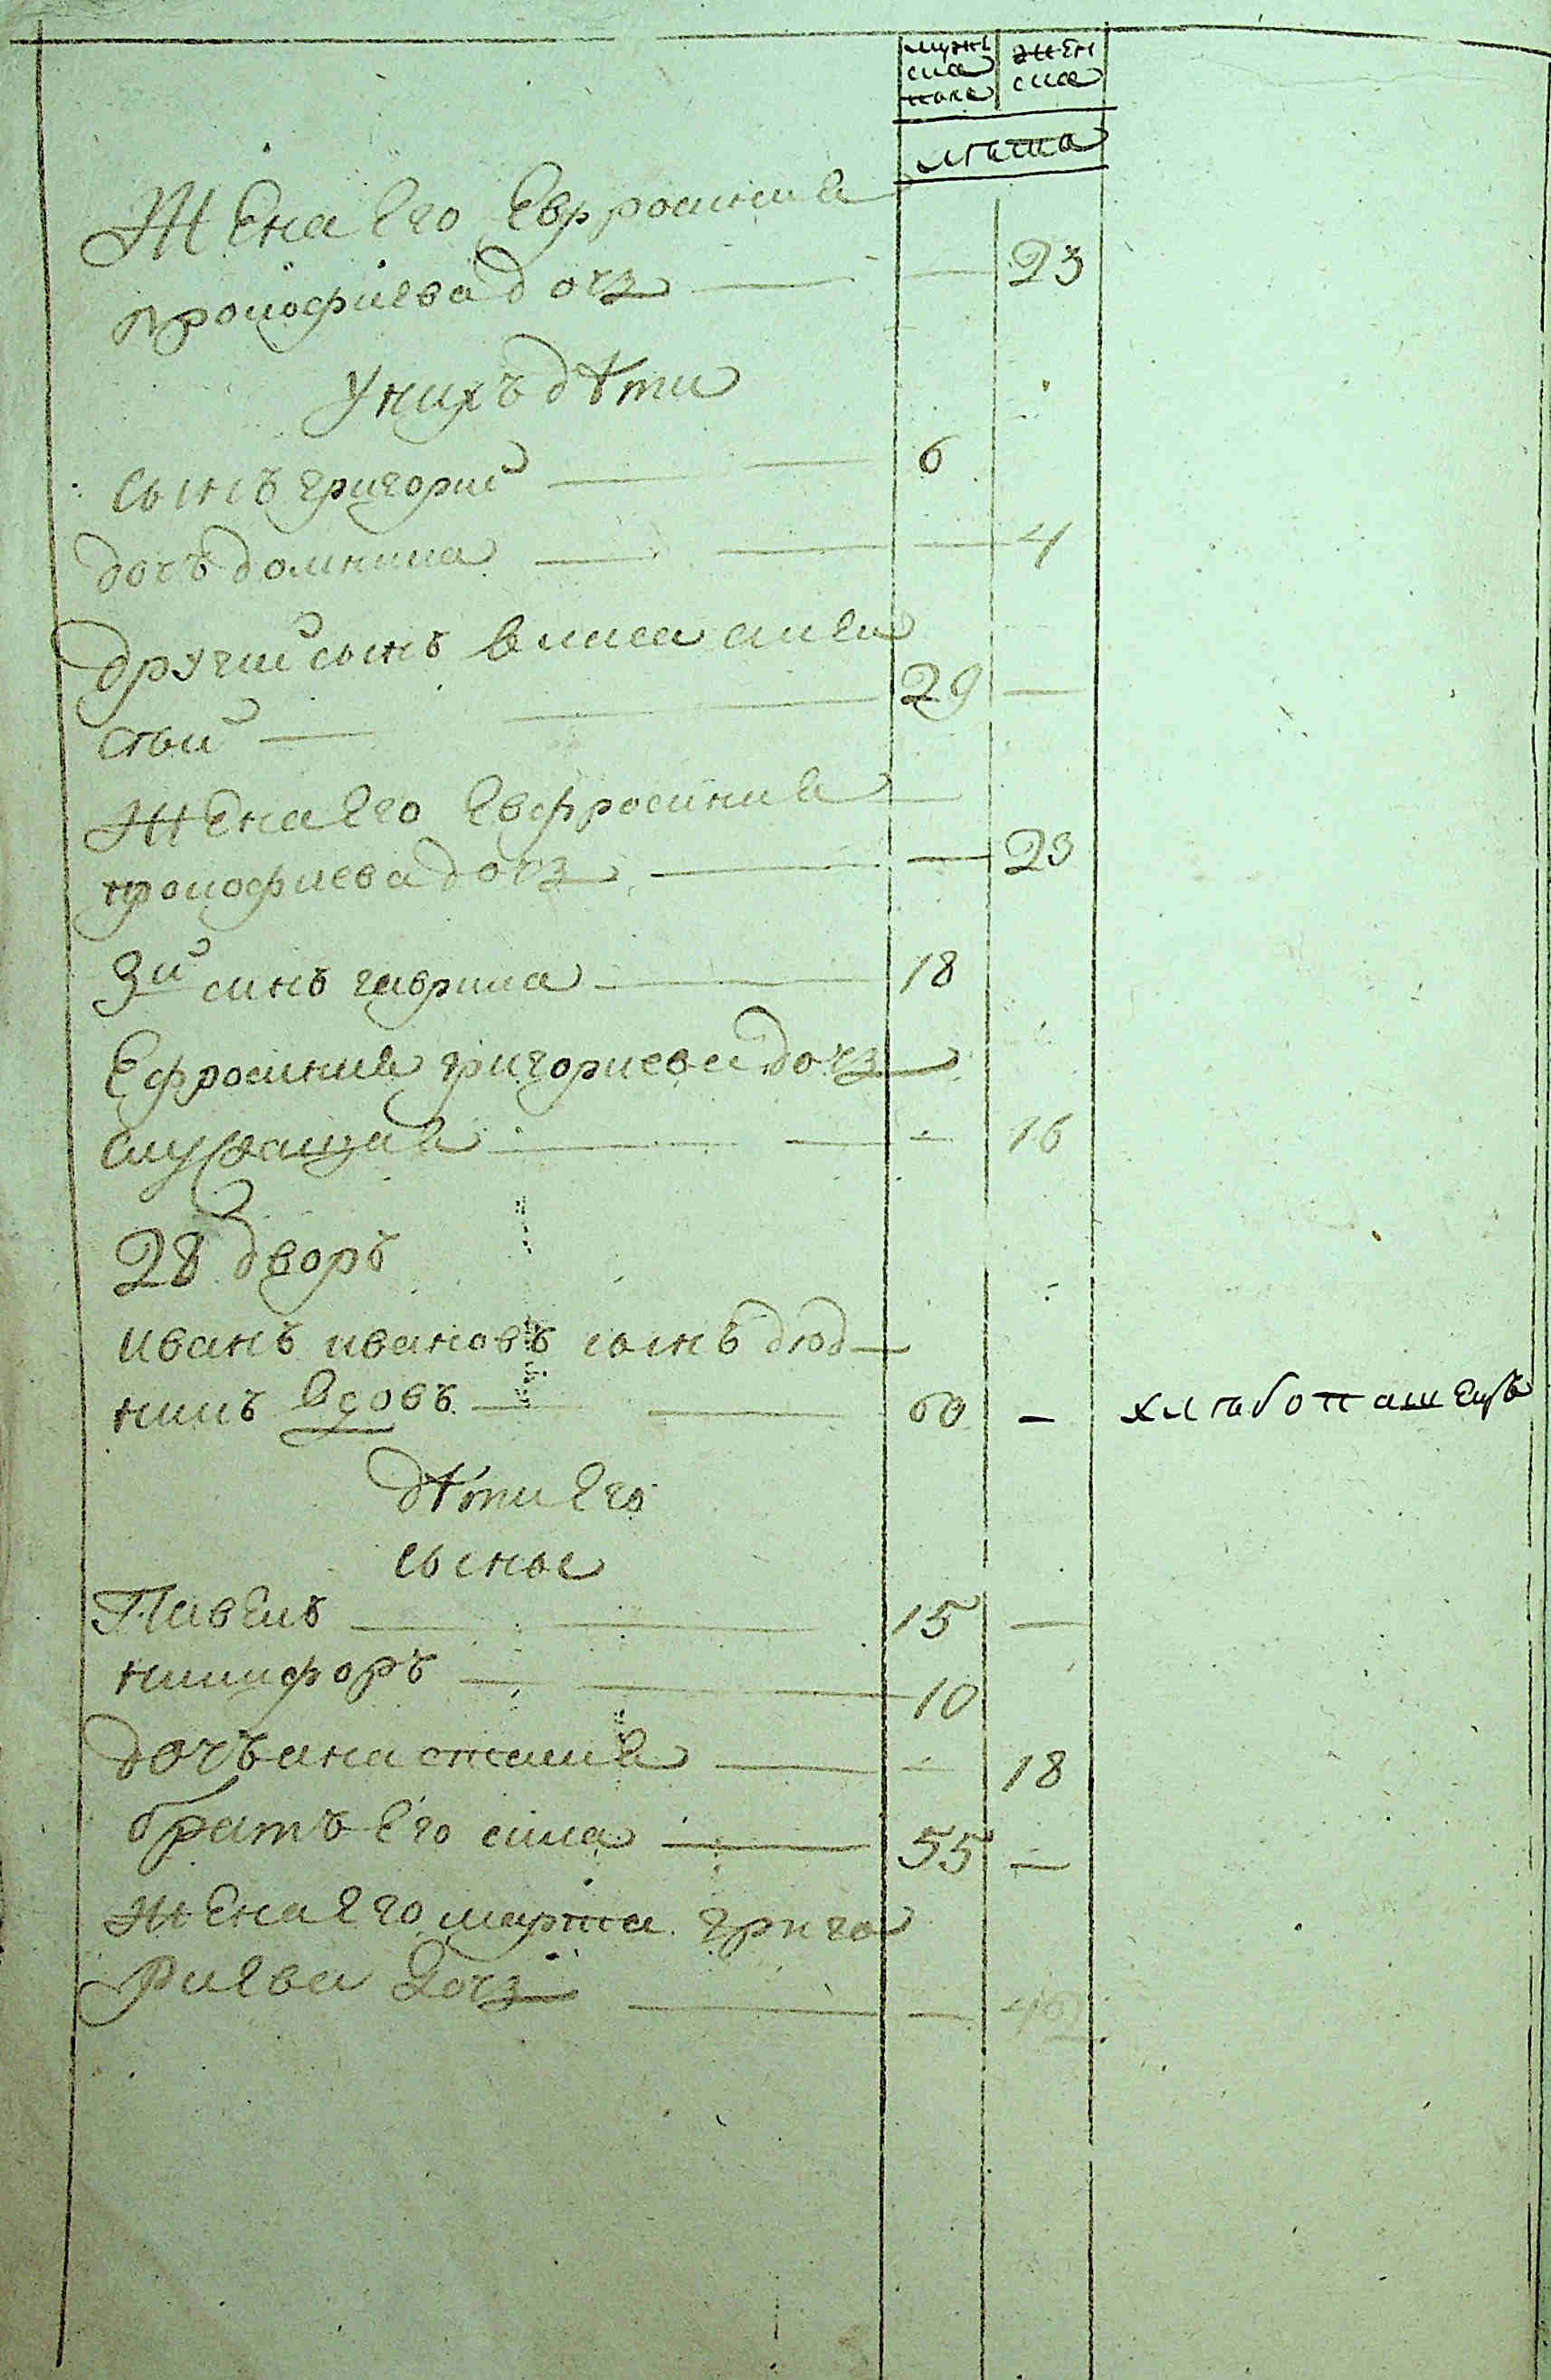 мужс жен
ска ска
пола
лѣта
Жена его Ефросиния
прокофиева дочь 23
У нихъ дѣти
сынъ григорий 6
дочь домникиа 4
другий сынъ
29
Жена его Евфросиния
прокофиева дочь 23
3й синъ гаврила 18
Ефросиния григориева дочь
служащая 16
28 дворъ
иванъ ивановъ сынъ дюд
никъ вдовъ 60 — хлѣбопашецъ
дѣти его
сыны
Павелъ 15 —
никифоръ 10
дочь анастасия 18
братъ его сила 55 —
жена его марта григо
риева дочь